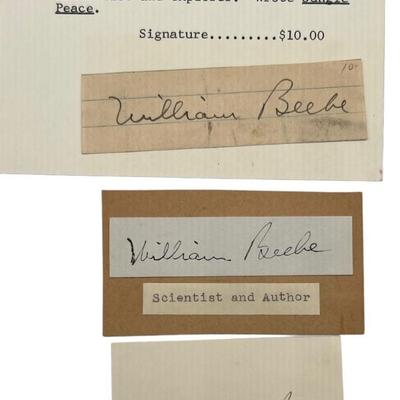 and explorer. Wrote Jungle
Peace.
Signature.........$10.00
10-
William Beebe
William Beebe
Scientist and Author